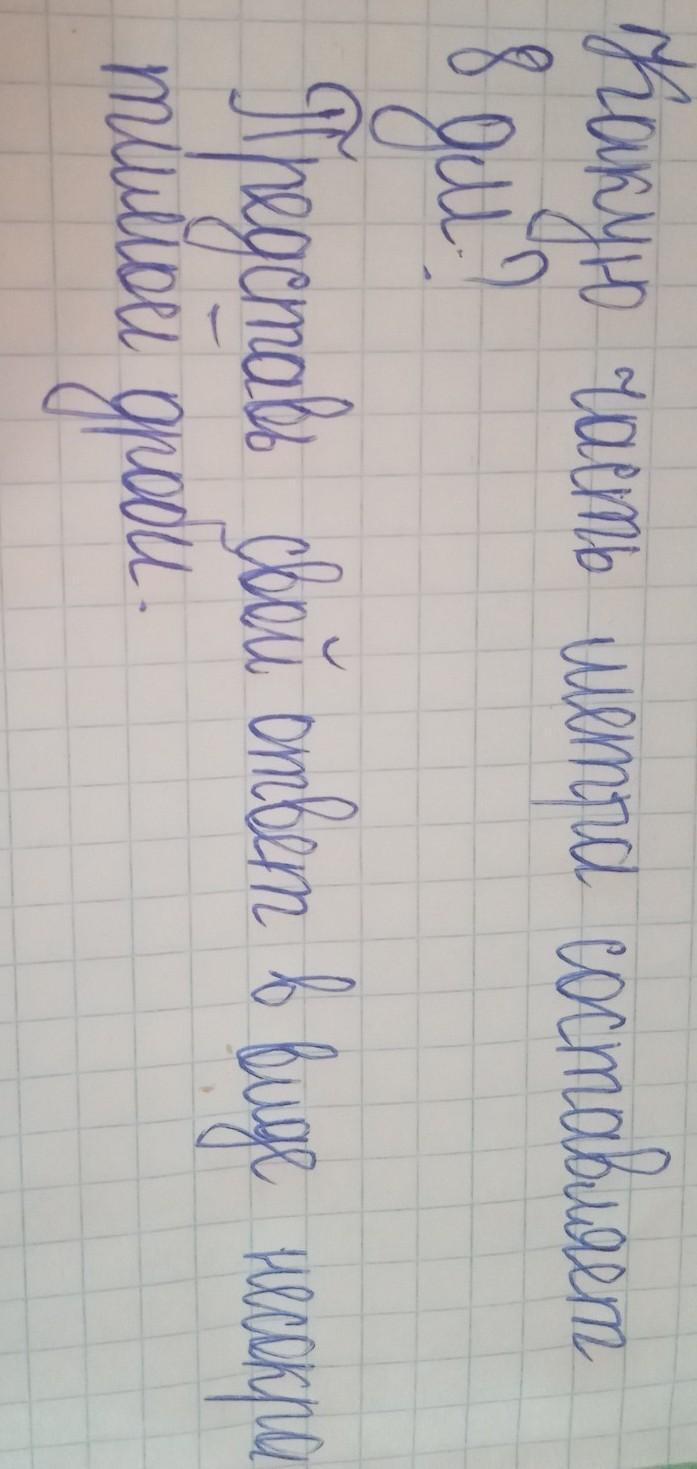 Какую часть метра составляет
8 дм?
Представь свой ответ в виде несокра
тимой дроби.